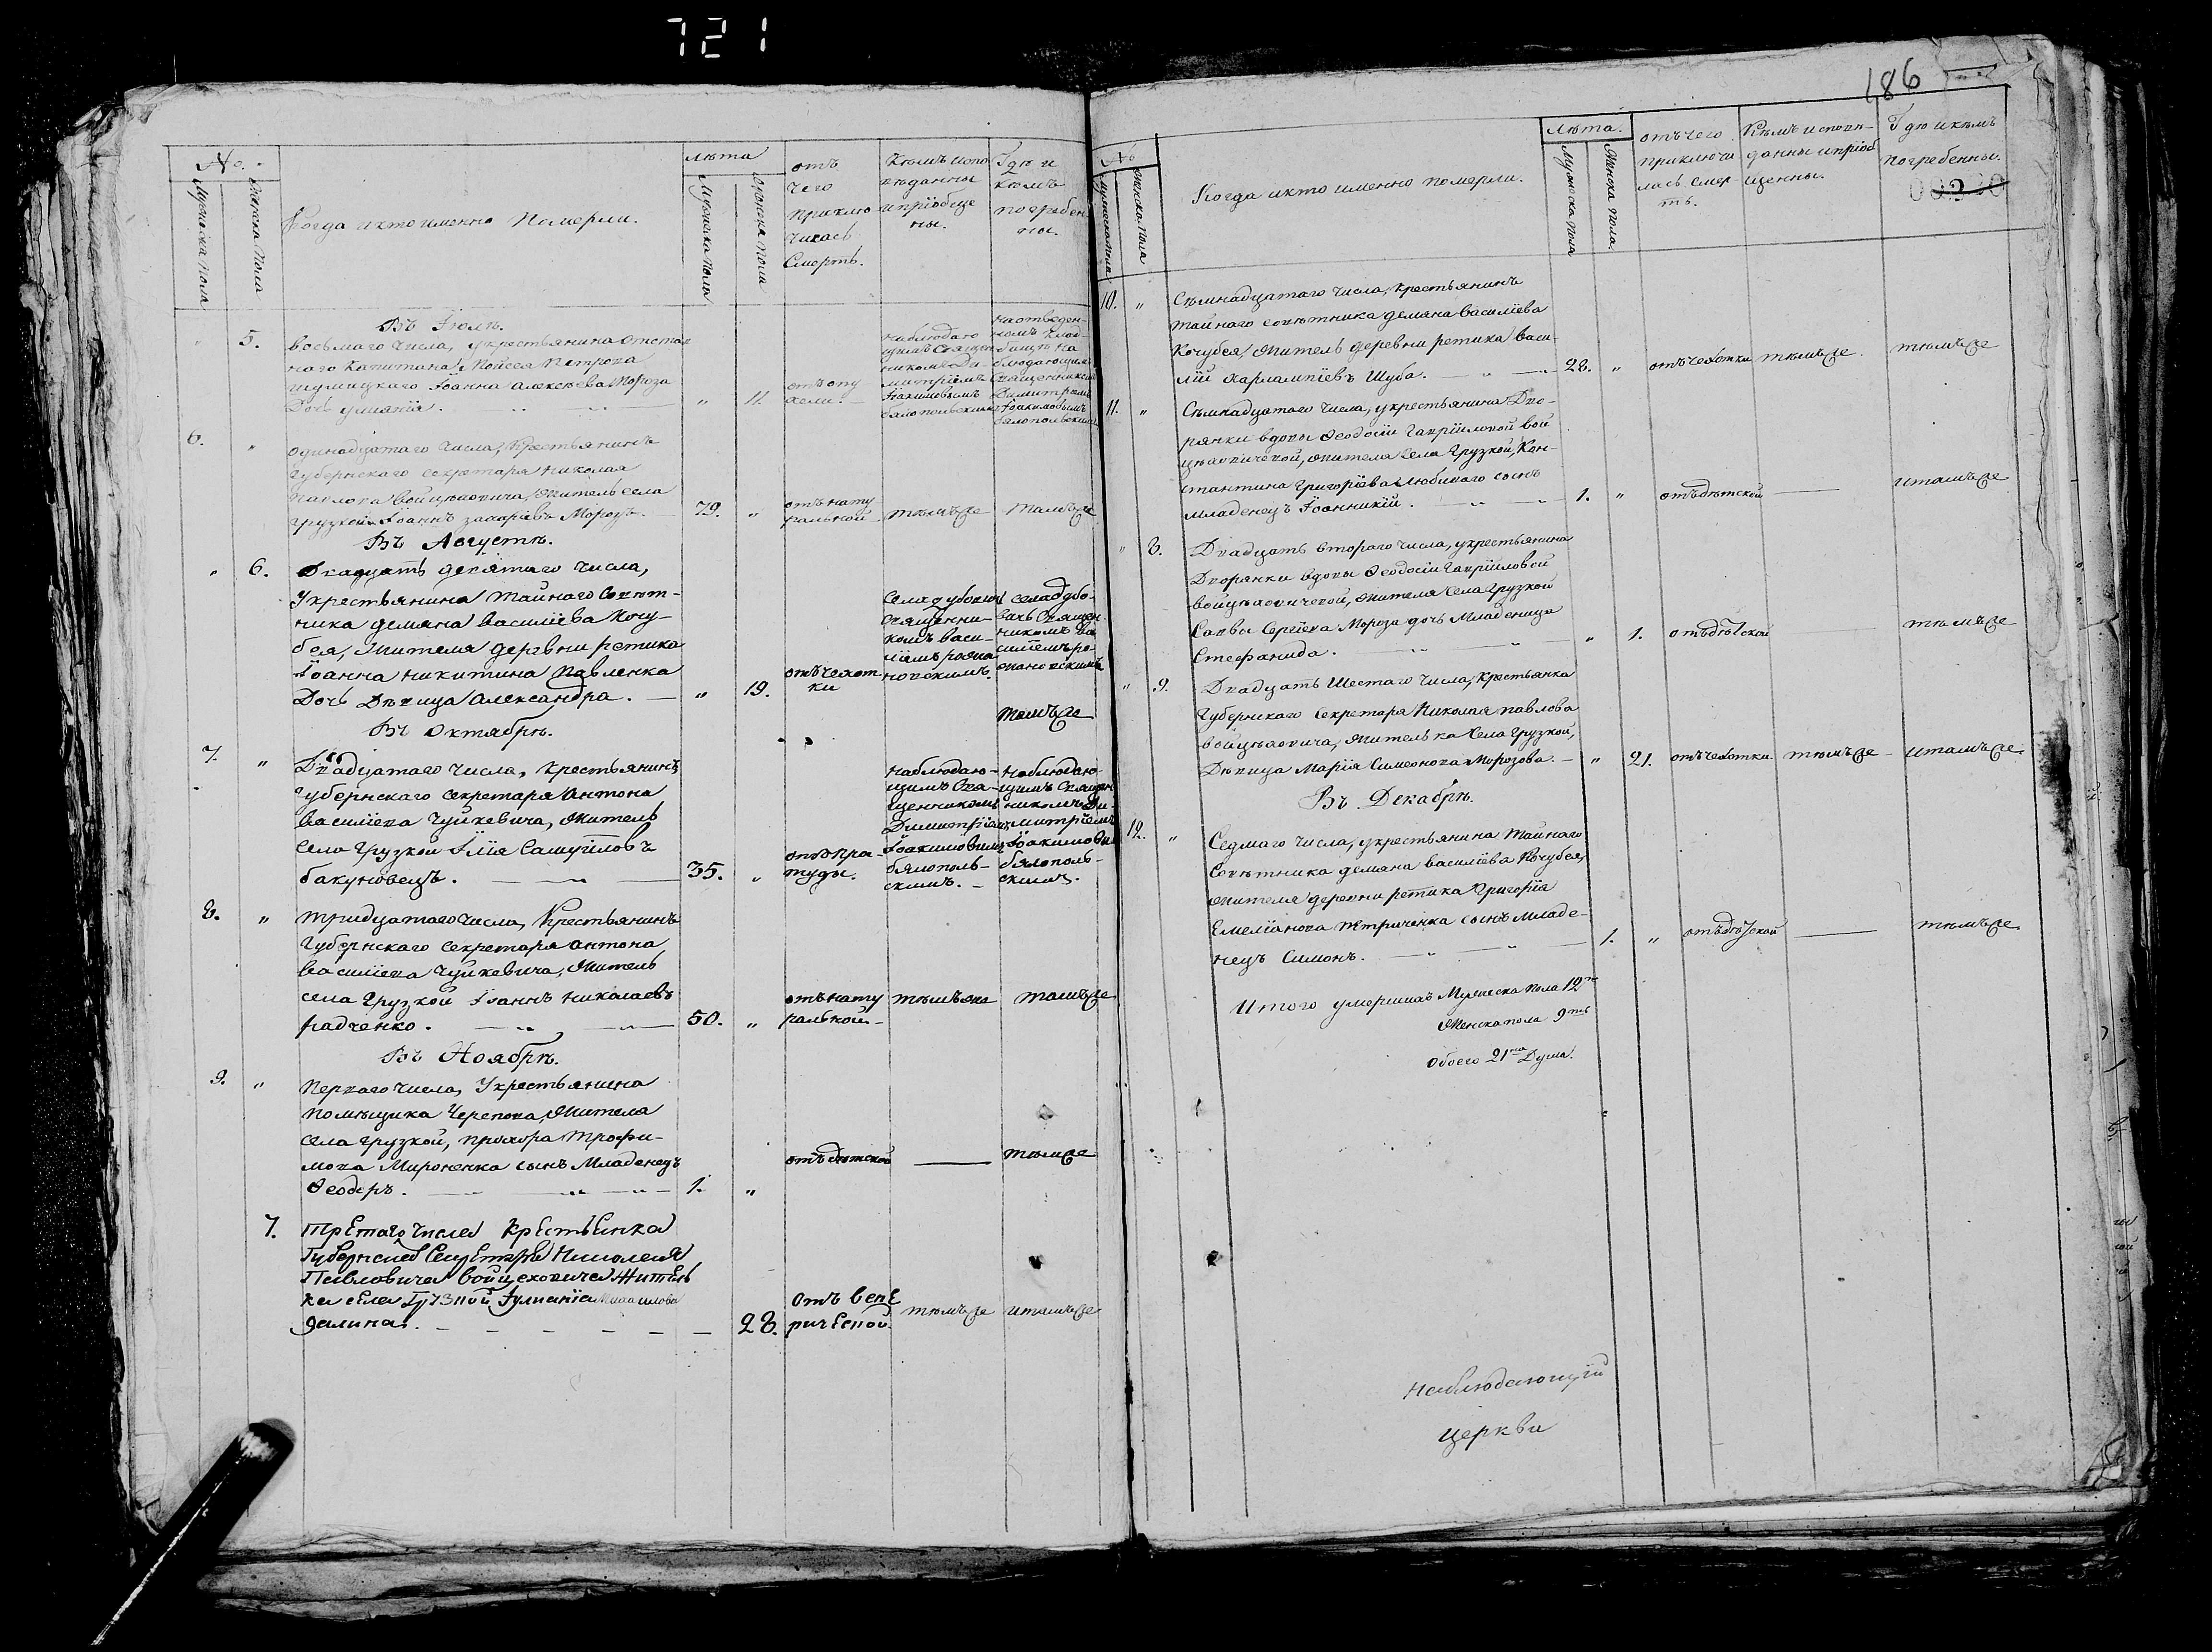 721
186
No.
Мужеска пола
Женска пола
Когда и кто именно померли.
лѣта
Мужеска пола
Женска пола
отъ
чего
приклю
чилась
смерть.
Кѣмъ испо
вѣданны
и пріобще
ны.
Гдѣ и
кѣмъ
погребен
ны.
Въ Іюлѣ.
5.
восьмаго числа, у крестьянина отстав
наго Капитана Мойсея Петрова
Шумицкаго Іоанна Алексѣева Мороза
Дочь уліянія.
"
11.
отъ опу
хели.
наблюдаю
щимъ Священ
никомъ Ди
митріемъ
Іоакимовымъ
бялопольскимъ
на отведен
номъ клад
бищѣ на
блюдающимъ
Священникомъ
Димитріемъ
Іоакимовымъ
бялопольскимъ
6.
"
одинадцатаго числа, крестьянинъ
Губернскаго секретаря Николая
Павлова Войцѣховича, житель села
Грузкой Іоаннъ Захаріевъ Морозъ.
79.
"
отъ нату
ральной
тѣмъ же
тамъ же
Въ Августѣ.
"
6.
Двадцать девятаго числа,
У крестьянина тайнаго Совѣт-
ника демяна василіева Кочу-
бея, жителя деревни ретика
Іоанна никитина Павленка
Дочь Дѣвица Александра.
"
19.
отъ чехот
ки
села дубович
священни-
комъ васи-
ліемъ рома
новскимъ.
села дубо-
вичъ священ
никомъ ва
силіемъ ро
мановскимъ
тамъ же
Въ Октябрѣ.
7.
"
Двадцатаго числа, крестьянинъ
Губернскаго секретаря Антона
василіева Чуйкевича, житель
села Грузкой Илія Самуиловъ
бакуновецъ.
35.
"
отъ пра-
туды.
наблюдаю-
щимъ Свя-
щенникомъ
Димитріемъ
Іоакимовымъ
бялополь-
скимъ.
наблюдаю-
щимъ Священ
никомъ Ди-
митріемъ
Іоакимовы
бялополь-
скимъ.
8.
"
тридцатаго числа, Крестьянинъ
Губернскаго секретаря антона
василіева Чуйкевича, житель
села Грузкой Іоаннъ николаевъ
радченко.
50.
"
отъ нату
ральной
тѣмъ же
тамъ же
Въ Ноябрѣ.
9.
"
Перваго числа, У крестьянина
помѣщика Черепова, жителя
села Грузкой, прохора трофи-
мова Мироненка сынъ Младенецъ
Ѳеодоръ.
1.
"
отъ дѣтской
тѣмже
7.
третяго числа крестьянка
Губернскаго Секретаря Николая
Павловича войцеховича житель
ка села Грузкой Іулианіа Михаилова
галина.
28.
отъ вене
рической.
тѣмъ же
и тамъ же
No
Мужеска пола
Женска пола
Когда и кто именно померли.
Лѣта.
Мужеска пола
Женска пола
отъ чего
приключи
лась смер
ть.
Кѣмъ исповѣ-
данны и пріоб
щенны.
Гдѣ и кѣмъ
погребенны.
10.
"
Семнадцатаго числа, крестьянинъ
тайнаго совѣтника демяна василіева
Кочубея, житель деревни ретика васи-
лій Харлампіевъ Шуба.
28.
"
отъ чехотки
тѣмъ же.
тѣмъ же
11.
"
Семнадцатаго числа, у крестьянина Дво-
рянки вдовы Ѳеодосіи Гавріиловой вой
цѣховичевой, жителя села Грузкой, Кон-
стантина Григоріева Любимаго сынъ
младенецъ Іоанникій.
1.
"
отъ дѣтской
и тамъ же
"
8.
Двадцать втораго числа, у крестьянина
Дворянки вдовы Ѳеодосіи Гавріиловой
войцѣховичевой, жителя села Грузкой
Саввы Сергіева Мороза дочь Младеница
Стефанида.
"
1.
отъ дѣтской
тѣмъ же
"
9.
Двадцать Шестаго числа, крестьянка
Губернскаго секретаря Николая павлова
войцѣховича, жителька села Грузкой,
Дѣвица Марія Симеонова Морозова.
"
21.
отъ чехотки
тѣмъ же
и тамъ же
Въ Декабрѣ.
12.
"
Седмаго числа, у крестьянина тайнаго
Совѣтника демяна василіева Кочубея,
жителя деревни ретика Григорія
Емеліанова Петриченка сынъ младе-
нецъ Симонъ.
1.
"
отъ дѣтской
тѣмъ же
Итого умершихъ Мужеска пола 12ть
Женска пола 9ть
обоего 21на Душа.
Наблюдающій
церкви